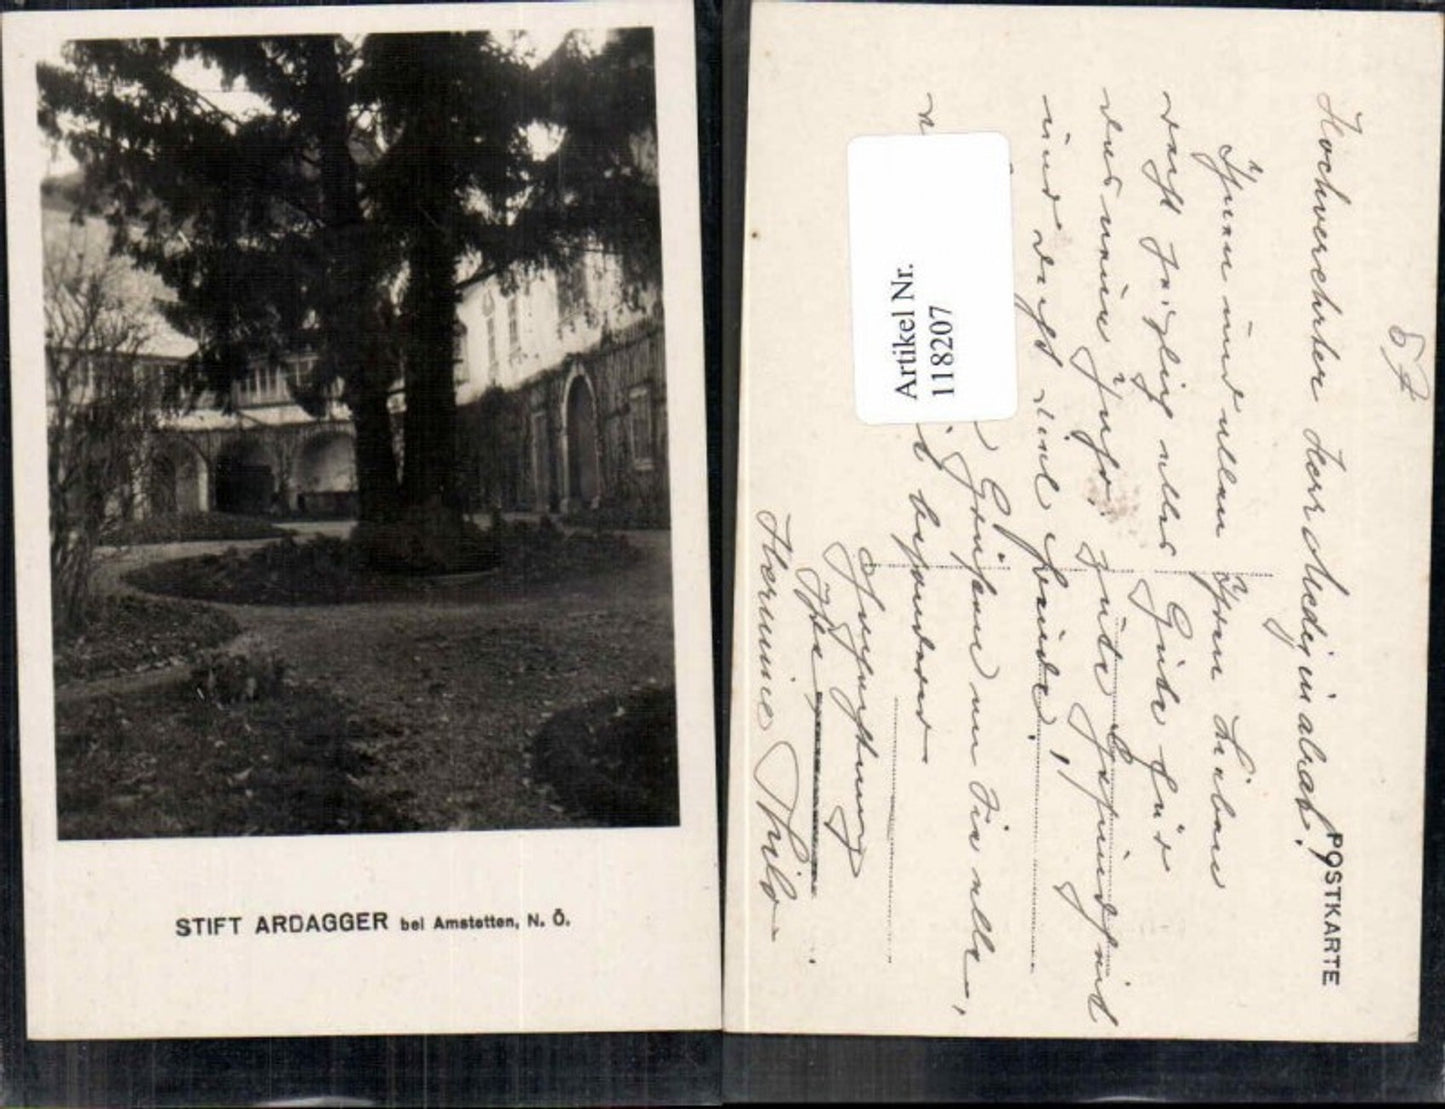 STIFT ARDAGGER bei Amstetten, N. Ö.
POSTKARTE
57
Hochverehrter Herr Medizinalrat!
Ihnen und allen Ihren Lieben
recht freudig alles Gute für
das neue Jahr. gute Gesundheit
und recht viel Freude,
Grüßen an Sie alle,
besonders
Hochachtung
Ihre
Hermine
Artikel Nr.
118207